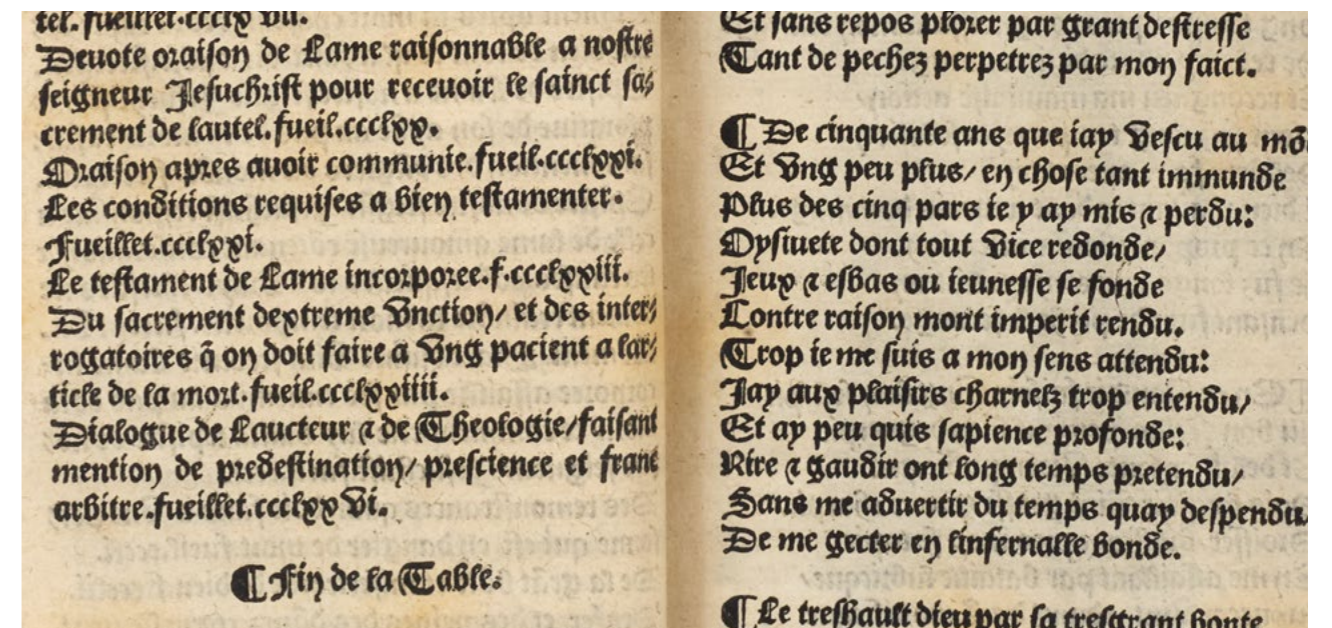 tel. fueillet.ccclx vii.
Deuote oraison de Lame raisonnable a nostre
seigneur Jesuchrist pour receuoir le sainct sa⸗
crement de lautel.fueil.ccclxx.
Oraison apres auoir communie.fueil.ccclxxi.
Les conditions requises a bien testamenter.
Fueillet.ccclxxi.
Le testament de Lame incorporee.f.ccclxxiii.
Du sacrement dextreme vnction/ et des inter⸗
rogatoires q̄ on doit faire a vng pacient a lar⸗
ticle de la mort.fueil.ccclxxiiii.
Dialogue de Laucteur ⁊ de Theologie/faisant
mention de predestination/ prescience et franc
arbitre.fueillet.ccclxx vi.
¶ Fin de la Table.
Et sans repos plorer par grant destresse
Tant de pechez perpetrez par mon faict.
¶ De cinquante ans que iay vescu au mō
Et vng peu plus/ en chose tant immunde
Plus des cinq pars ie y ay mis ⁊ perdu:
Oysiuete dont tout vice redonde/
Jeux ⁊ esbas ou ieunesse se fonde
Contre raison mont imperit rendu.
Trop ie me suis a mon sens attendu:
Jay aux plaisirs charnelz trop entendu/
Et ay peu quis sapience profonde:
Rire ⁊ gaudir ont long temps pretendu/
Sans me aduertir du temps quay despendu
De me gecter en linfernalle bonde.
¶ Le treshault dieu par sa tresgrant bonte